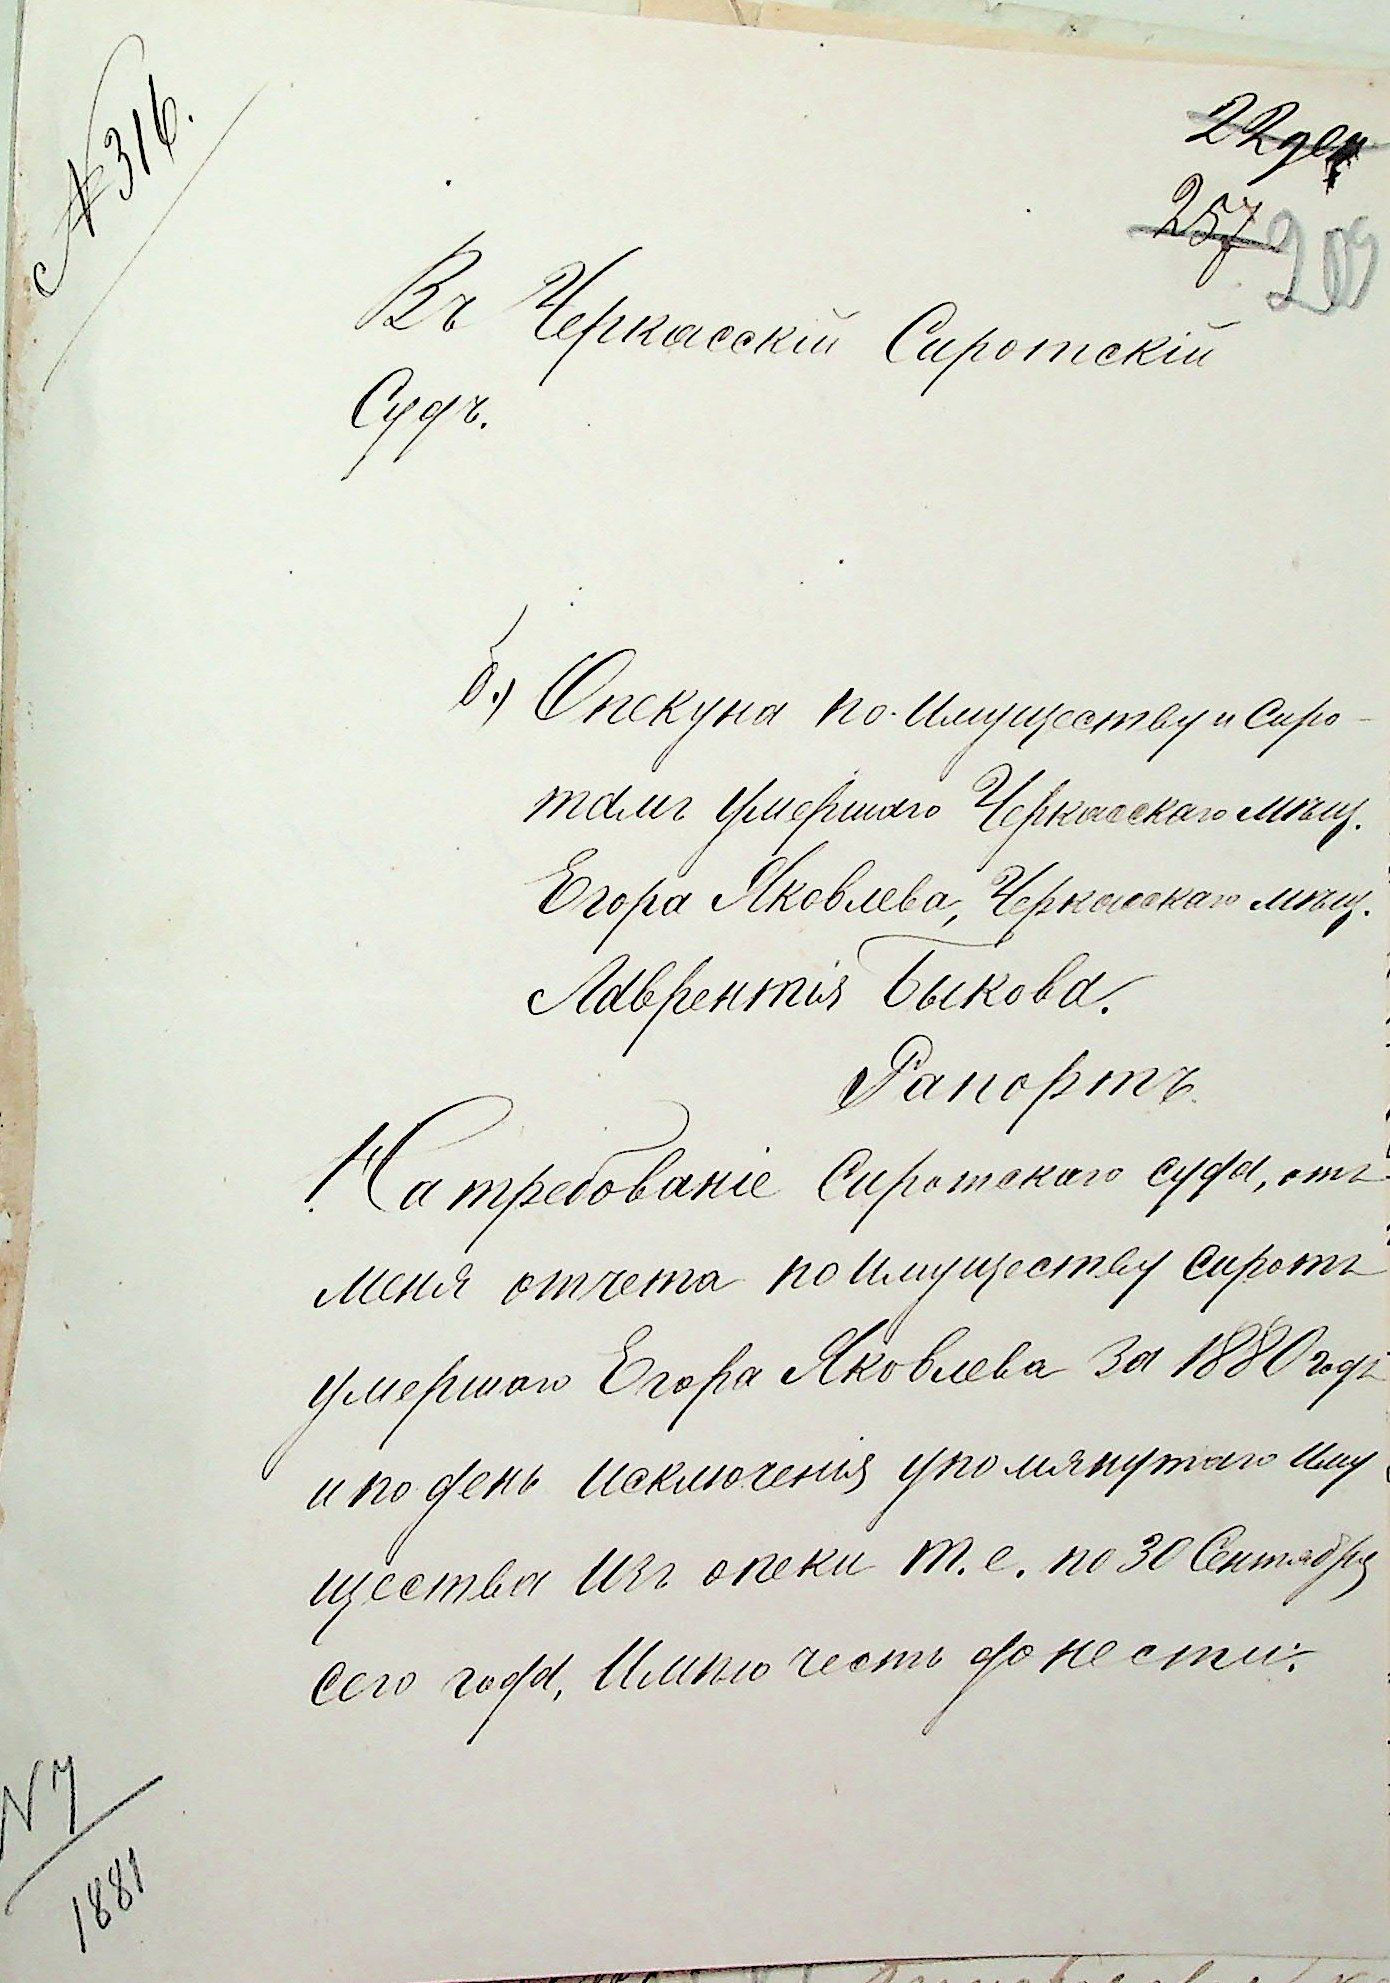 № 316.
22 дек
257
209
Въ Черкасскій Сиротскій
Судъ.
б.) Опекуна по имуществу и сиро-
тамъ умершаго Черкасскаго мѣщ.
Егора Яковлева, Черкасскаго мѣщ.
Лаврентія Быкова.
Рапортъ.
На требованіе Сиротскаго суда, отъ
меня отчета по имуществу сиротъ
умершаго Егора Яковлева за 1880 годъ
и по день исключенія упомянутаго иму
щества изъ опеки т.е. по 30 Сентября
сего года, Имѣю честь донести:
N 7
1881